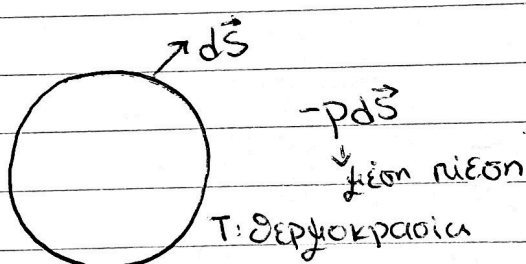 dS⃗
-pdS⃗
μέση πίεση
T: θερμοκρασία